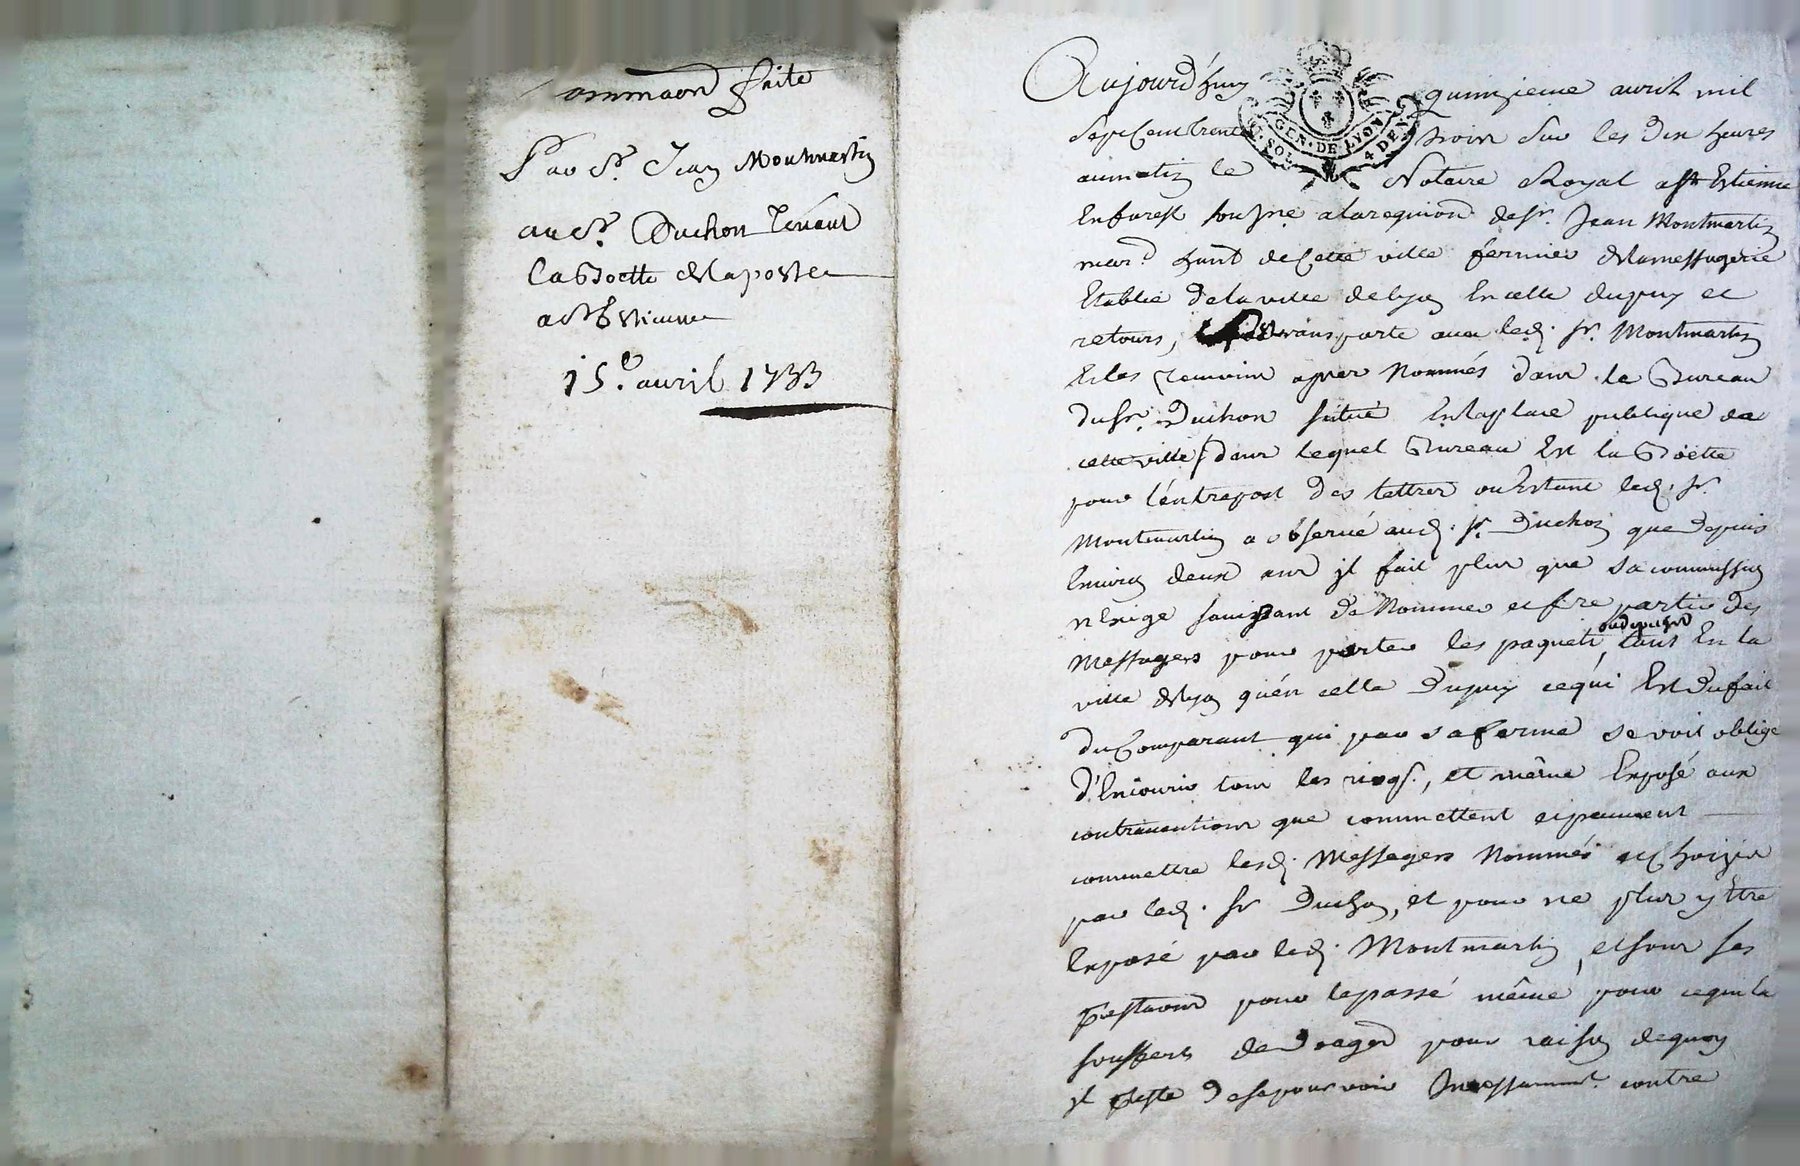 Sommaon faite
Par Sr. Jean Montmartin
au Sr. Duchon Tenant
la Boette de la poste
a St Estienne
15e. avril 1733
Aujourd'huy quinzieme avril mil
sept cent trente trois sur les dix heures
du matin le Notaire Royal a St Estienne
En forest sousne a la requiond de Sr. Jean Montmartin
marchand de Cette ville fermier de la messagerie
Etablie de la ville de lyon En celle du puy et
retours, transporte avec led. Sr. Montmartin
Et les temoins apres Nommés dans le Bureau
du Sr. Duchon situé En la place publique de
cette ville, dans lequel Bureau Est la Boëtte
pour l'entrepost des lettres ou Estant led. Sr.
Montmartin a observé aud. Sr. Duchon que depuis
Environ deux ans jl fait plus que sa commission
n'Exige de Nommer et fre partir des
Messagers pour porter les paquets, tant En la
ville de lyon qu'en celle du puy ce qui Est du fait
du Comparant qui par sa ferme se voit obligé
d'Encourir tous les risqs., et même Exposé aux
contraventions que commettent et peuvent
commettre lesd. Messagers Nommés et Choizis
par led. Sr Duchon, et pour ne plus y Etre
Exposé par led. Montmartin, et sous ses
ptestaons pour le passé même pour ce qu'il a
souffert de domages pour raison de quoy
jl pteste de se pourvoir Incessamment contre
GEN · DE LYON
SOL 4 DEN